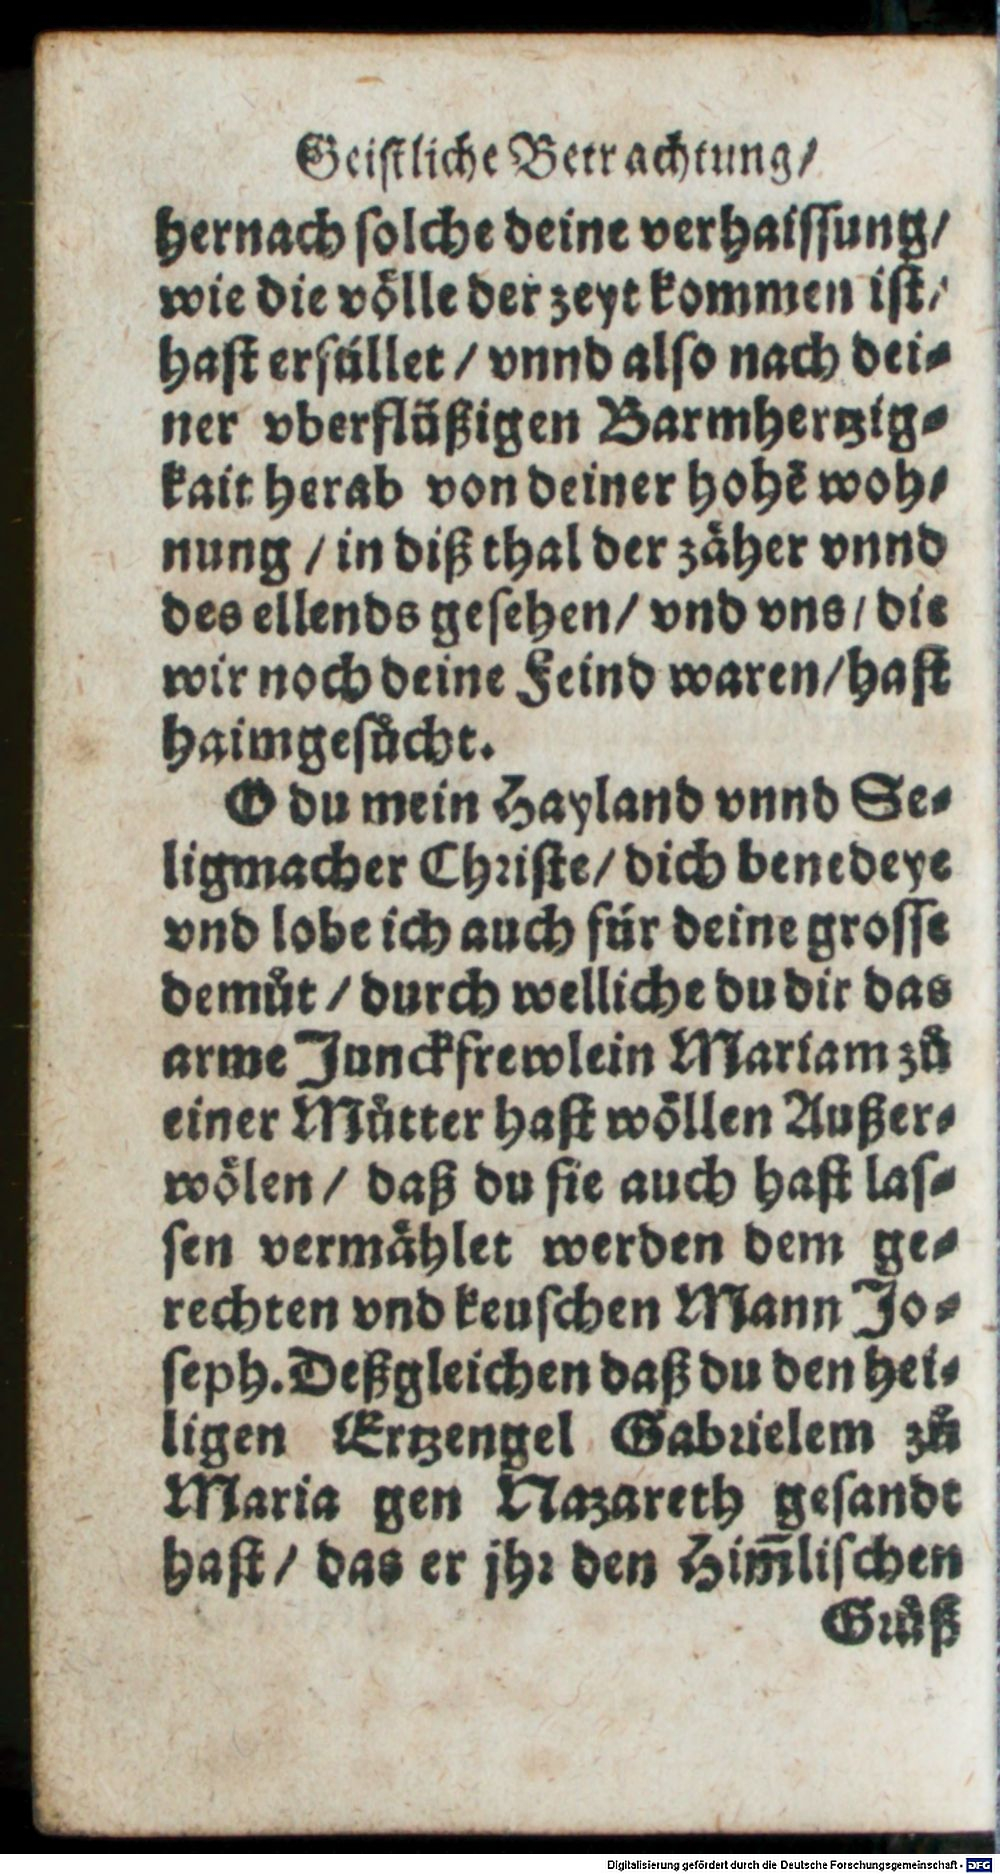 Geistliche Betrachtung/
hernach solche deine verhaissung/
wie die völle der zeyt kommen ist/
hast erfüllet / vnnd also nach dei-
ner vberflüßigen Barmhertzig-
kait herab von deiner hohē woh-
nung / in diß thal der zäher vnnd
des ellends gesehen/ vnd vns/ die
wir noch deine Feind waren/ hast
haimgesůcht.
O du mein Hayland vnnd Se-
ligmacher Christe/ dich benedeye
vnd lobe ich auch für deine grosse
demůt / durch welliche du dir das
arme Junckfrewlein Mariam zů
einer Můtter hast wöllen Außer-
wölen/ daß du sie auch hast las-
sen vermählet werden dem ge-
rechten vnd keuschen Mann Jo-
seph. Deßgleichen daß du den hei-
ligen Ertzengel Gabrielem zů
Maria gen Nazareth gesandt
hast/ das er jhr den Him̄lischen
Grůß
Digitalisierung gefördert durch die Deutsche Forschungsgemeinschaft - DFG